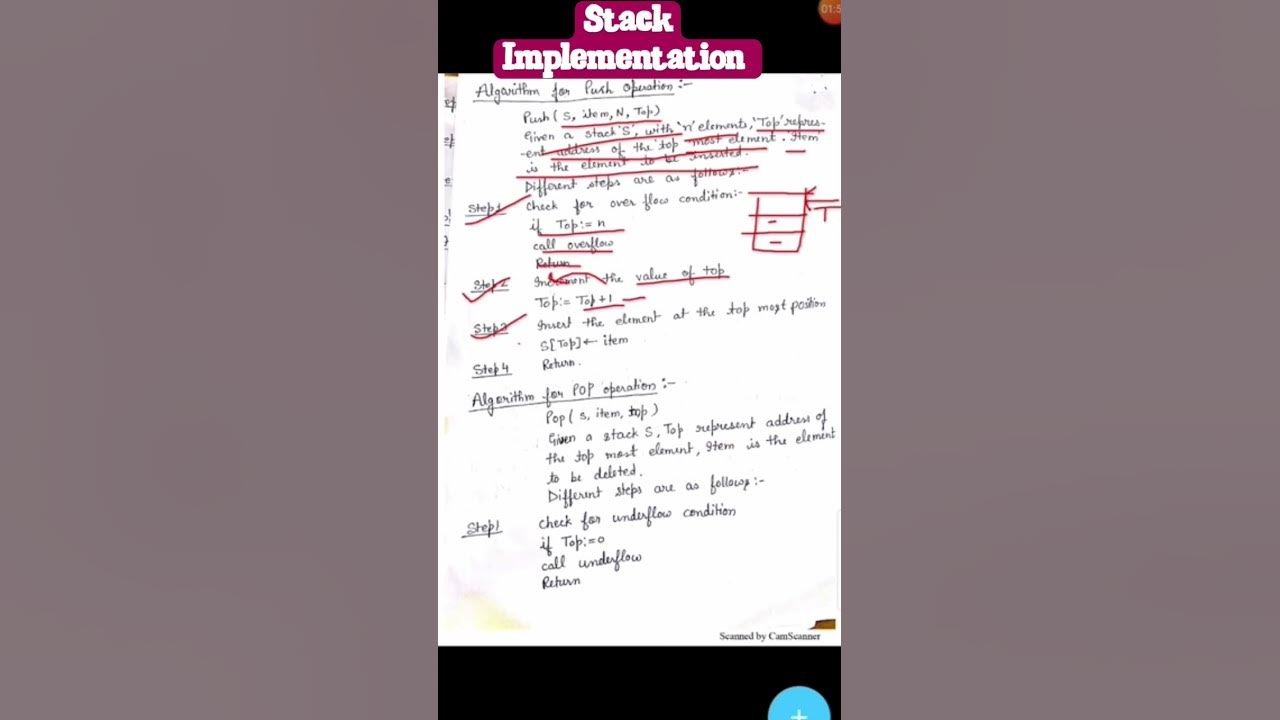 01:5
Stack
Implementation
Algorithm for Push Operation:-
Push(S, item, N, Top)
Given a stack 'S', with 'n' elements, 'Top' repres-
-ent address of the top most element. Item
is the element to be inserted.
Different steps are as follows:-
Step 1 Check for over flow condition:-
if Top:= n
call overflow
Return
T
Step 2 Increment the value of top
Top:= Top+1
Step 3 Insert the element at the top most position
S[Top]← item
Step 4 Return.
Algorithm for POP operation:-
Pop(S, item, top)
Given a stack S, Top represent address of
the top most element, Item is the element
to be deleted.
Different steps are as follows:-
Step 1 Check for underflow condition
if Top:=0
call underflow
Return
Scanned by CamScanner